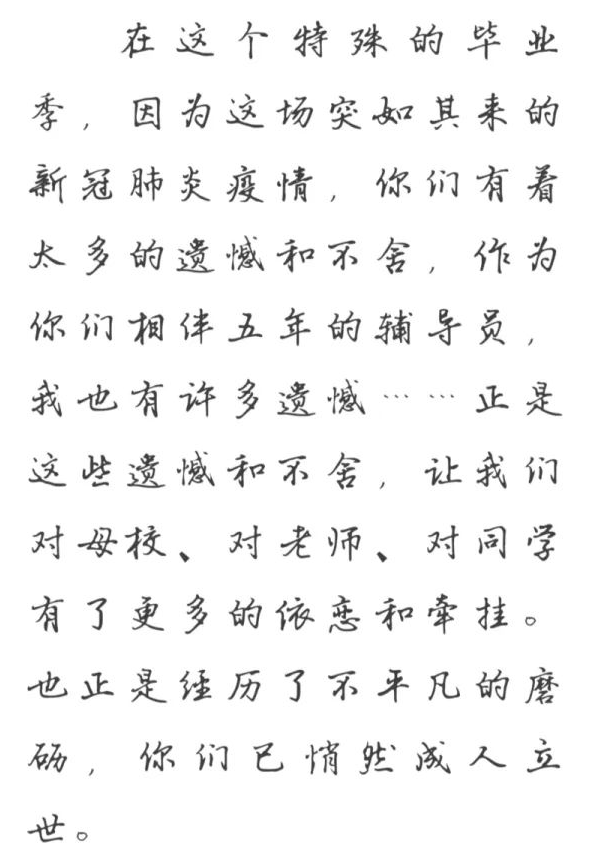 在这个特殊的毕业
季，因为这场突如其来的
新冠肺炎疫情，你们有着
太多的遗憾和不舍，作为
你们相伴五年的辅导员，
我也有许多遗憾……正是
这些遗憾和不舍，让我们
对母校、对老师、对同学
有了更多的依恋和牵挂。
也正是经历了不平凡的磨
砺，你们已悄然成人立
世。